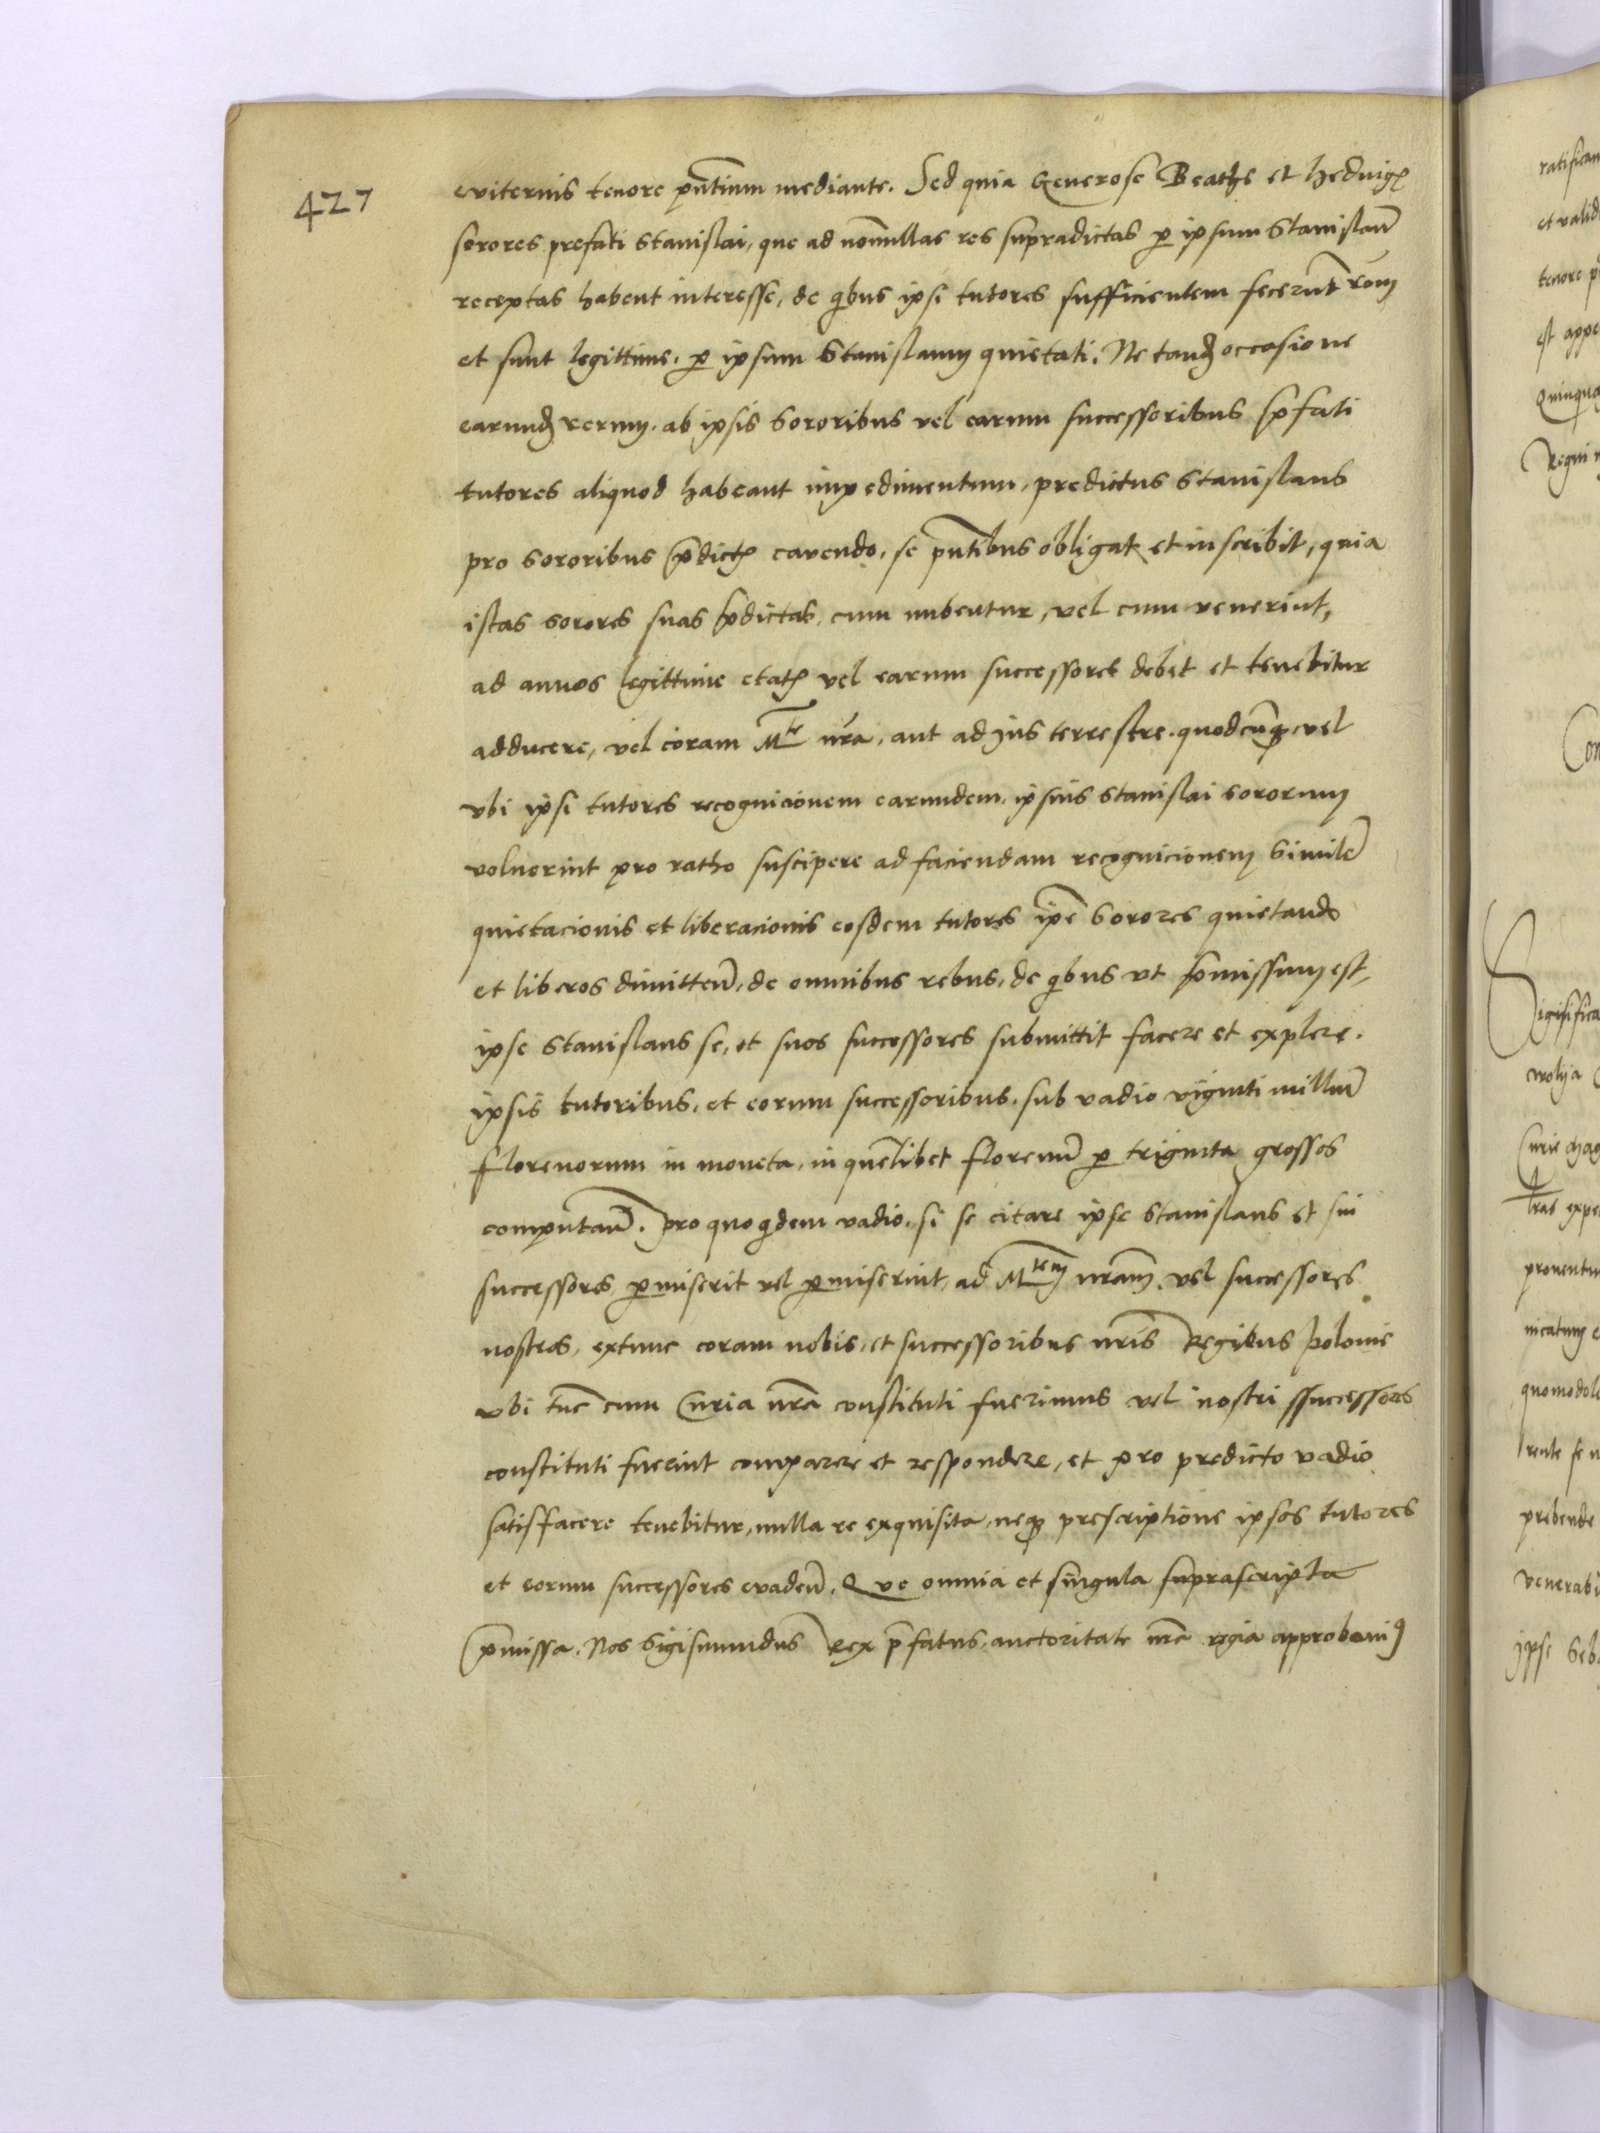 427
eviternis tenore pñtium mediante. Sed quia Generose Beathe et hedvigꝭ
sorores prefati Stanislai, que ad nonnullas res supradictas ꝑ ipsum Stanislaũ
receptas habent interesse, de qbus ipsi tutores sufficientem fecerũt rõm
et sunt legittime ꝑ ipsum Stanislaum quietati. Ne tanđ occasione
earunđ rerum ab ipsis sororibus vel earum successoribus p̃fati
tutores aliquod habeant impedimentum, predictus Stanislaus
pro sororibus p̃dictꝭ cavendo, se pñtibus obligat et inscribit, quia
istas sorores suas p̃dictas, cum nubentur, vel cum venerint,
ad annos legittime etatꝭ vel earum successores debet et tenebitur
adducere, vel coram Mte nrã, aut ad Jus terrestre quodcũqꝫ vel
vbi ipsi tutores recognicionem earundem ipsius Stanislai sororum
voluerint pro ratho suscipere ad faciendam recognicionem similẽ
quietacionis et liberacionis eosdem tutores ipẽ sorores quietando
et liberos dimitteñ, de omnibus rebus, de qbus vt p̃missum est,
ipse Stanislaus se, et suos successores submittit facere et explere.
ipsis tutoribus, et eorum successoribus, sub vadio viginti milliũ
florenorum in moneta, in quẽlibet florenũ ꝑ triginta grossos
computañ. pro quo qdem vadio, si se citare ipse Stanislaus et sui
successores ꝑmiserit vel ꝑmiserint, ad Mtem nrãm, vel successores
nostros, extunc coram nobis, et successoribus nrĩs Regibus Polonie
vbi tũc cum Curia nrã constituti fuerimus vel nostri successores
constituti fuerint comparere et respondere, et pro predicto vadio
satisfacere tenebitur, nulla re exquisita, neqꝫ prescriptione ipsos tutores
et eorum successores evadeñ. Que omnia et singula suprascripta
p̃missa. Nos Sigismundus Rex p̃fatus, auctoritate nrã regia approbamꝰ
ratifican
et valid
tenore p
est appe
Quinqua
Regni n
Con
Significa
Curie
tras expe
proventu
nicatum e
quomodol
prebende
venerabi
Ipse Seb